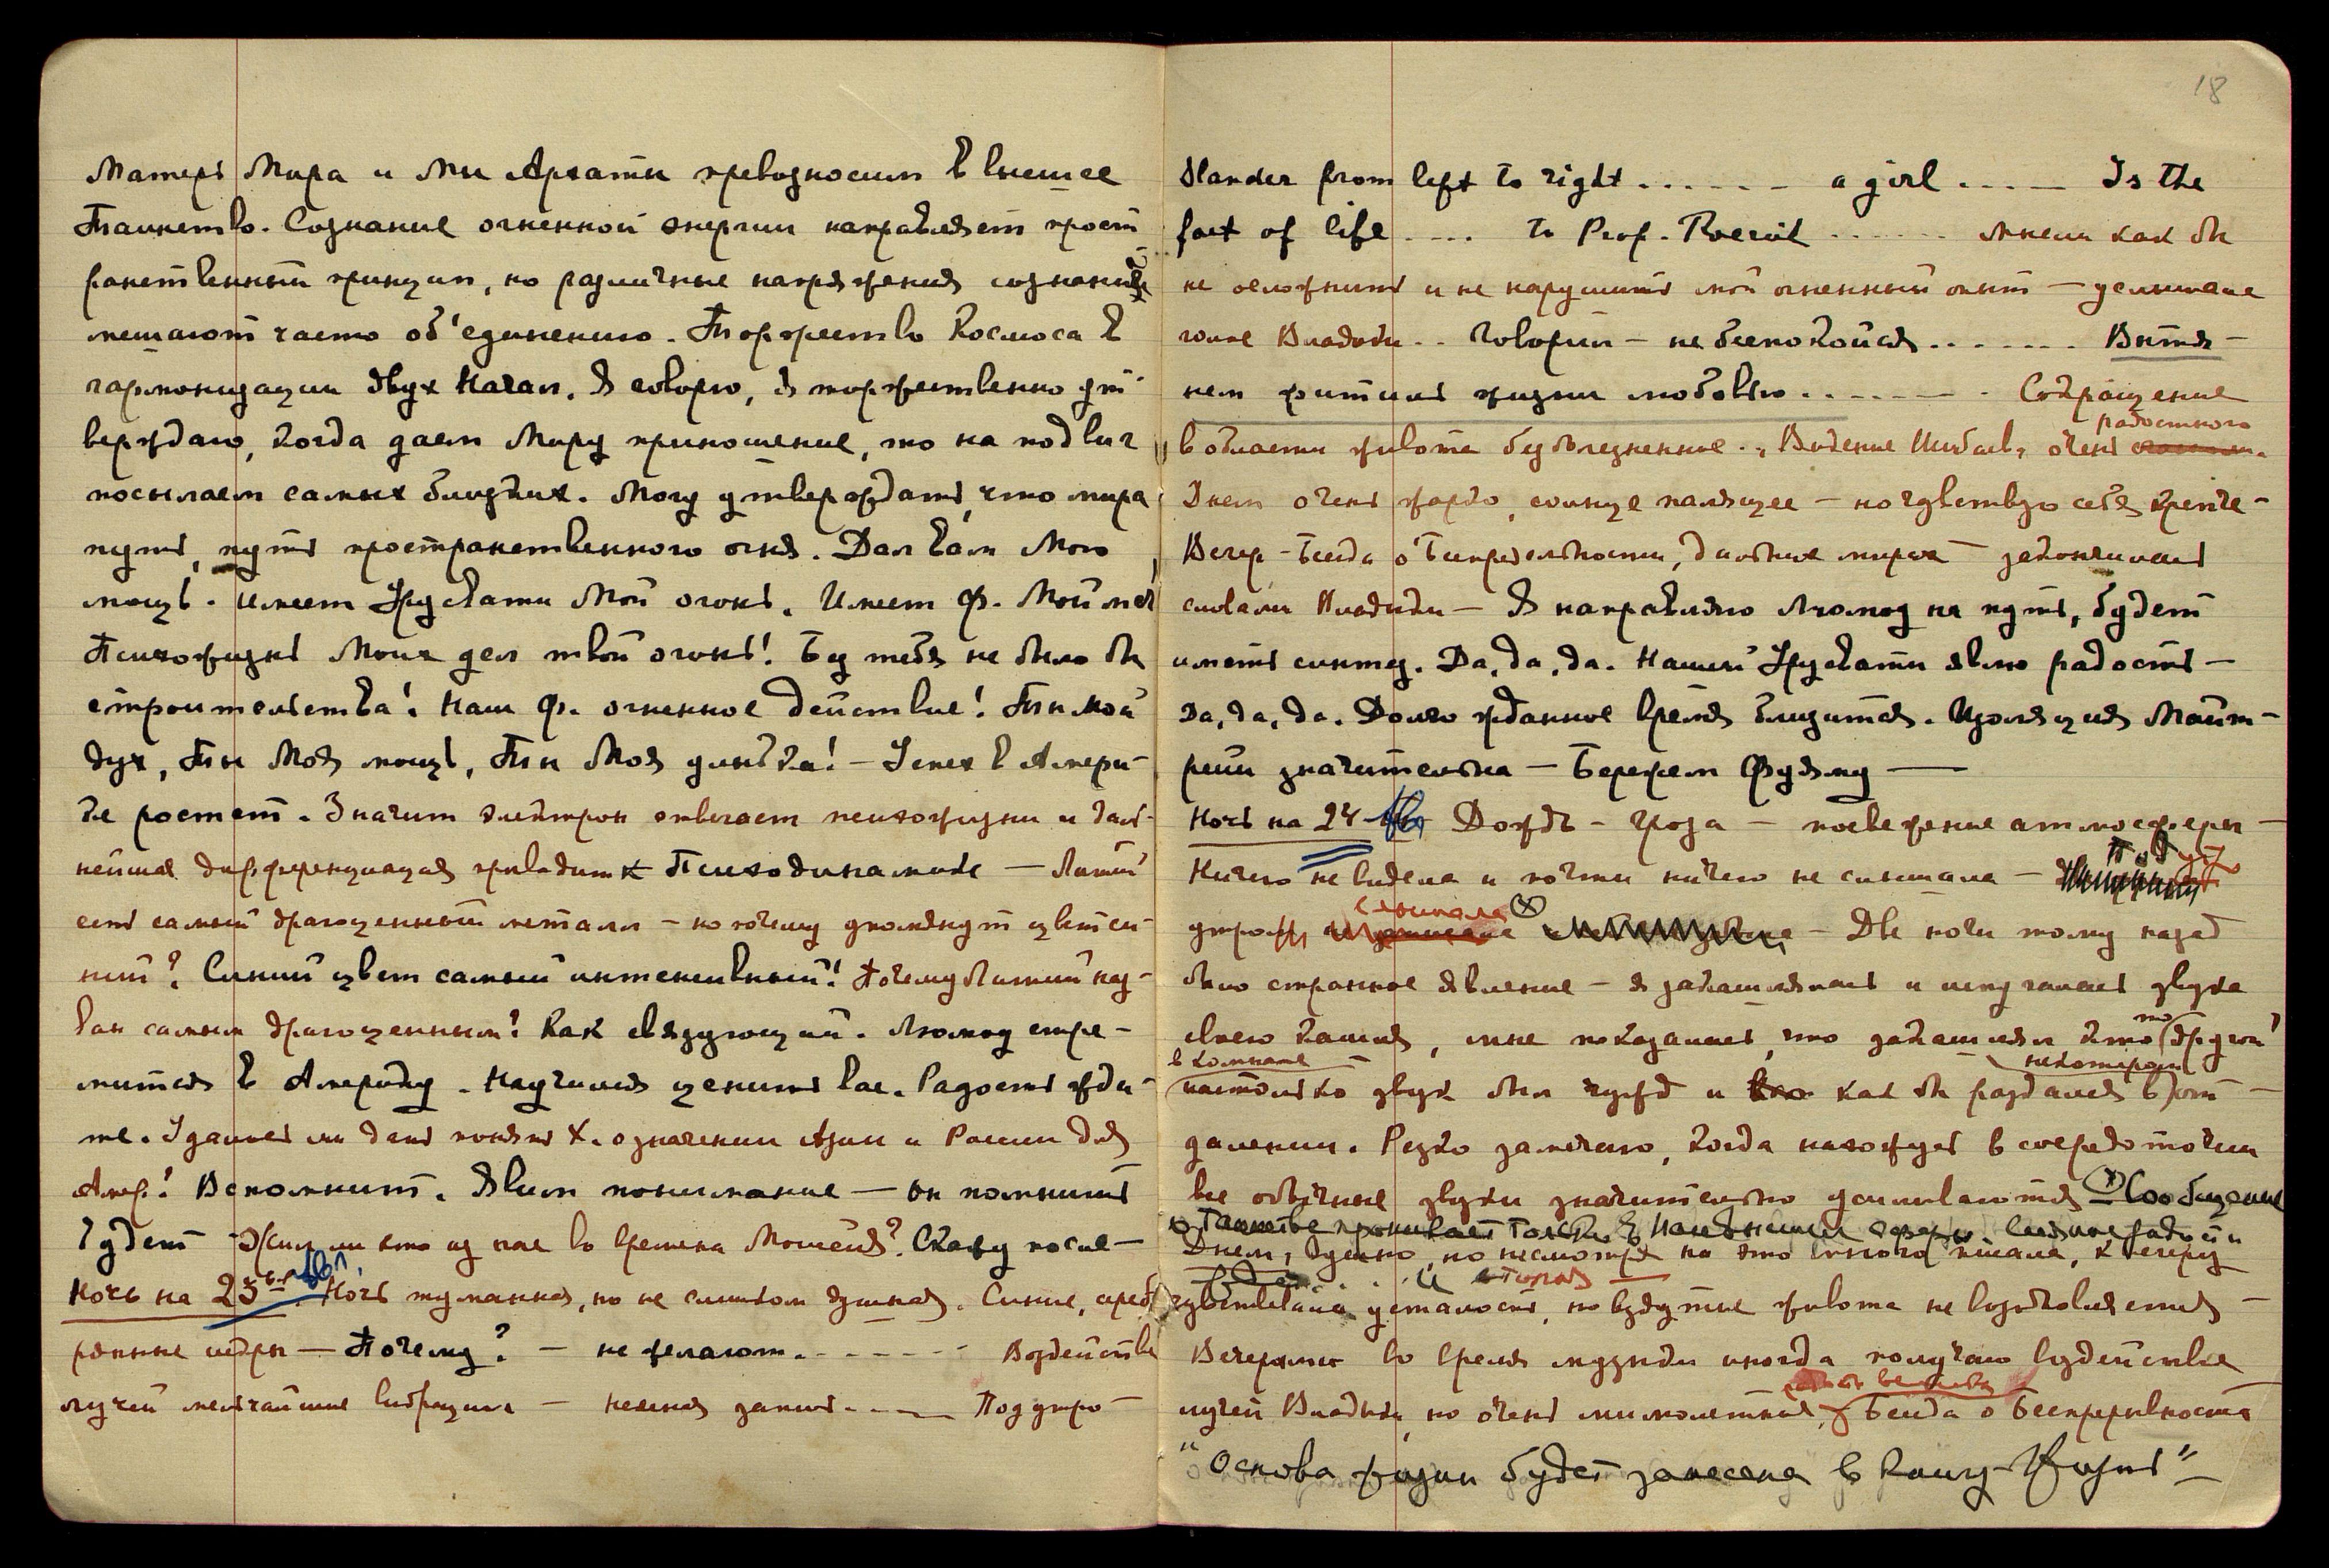 Матерь Мира и Мы Архаты превозносим в высшее
Таинство. Сознание огненной энергии направляет прост
ранственный принцип, но различные напряжения сознания
мешают часто об'единению. Торжество Космоса в
гармонизации двух Начал. Я говорю, я торжественно ут-
верждаю, когда даем Миру приношение, то на подвиг
посылаем самых близких. Могу утверждать, что мира
путь, путь пространственного огня. Дал вам Мою
мощь. Имеет Урусвати Мой огонь. Имеет Ф. Мой меч
Психожизнь Моих дел твой огонь! Без тебя не было бы
строительства! Наш Ф. огненное действие! Ты мой
дух, Ты Моя мощь, Ты Моя улыбка! – Успех в Амери-
ке ростет. Значит электрон отвечает психожизни и даль-
нейшая дифференциация приводит к Психодинамике — Литий
есть самый драгоценный металл – но почему упомянут цвет си-
ний? Синий цвет самый интенсивный! Почему Литий наз-
ван самым драгоценным? Как связующий. Люмоу стре-
мится в Америку. Научился ценить вас. Радость жди-
те. Удалось ли дать понять Х. о значении Азии и России для
Амер.? Вспомнит. Явим понимание — он помнить
будет Жил ли кто из нас во времена Моисея? Скажу после—
Ночь на 23ье Авг. Ночь туманная, но не слишком душная. Синие, среб
рянные искры — Почему? – не желают. - - - - - - - Воздействие
лучей мельчайшие вибрации – неясная запись. - - — Под утро –
18
Slander from left to right . . . . . . - a girl . . . . — Is the
fact of life . . . . To Prof. Roerich . . . . . . . мысли как бы
не осложнить и не нарушить мой огненный опыт – услышала
голос Владыки . . Говорил – не беспокойся . . . . . . . Вытя-
нем фитиль жизни любовью. . . . . . - - . Сокращение
радостного
в области живота безболезненное. Видение Шибаева очень
Днем очень жарко, солнце палящее – но чувствую себя крепче –
Вечер – Беседа о Беспредельности, дальние миры – закончилась
словами Владыки – Я направляю Люмоу на путь, будет
иметь синтез. Да, да, да. Нашей Урусвати явлю радость –
Да, да, да. Долго жданное время близится. Изоляция Майт-
рейи значительна – Бережем Фуяму —
Ночь на 24 Авг Дождь – гроза – посвежение атмосферы –
Ничего не видела и почти ничего не слышала – Под
утро слышала ⊗ – Две ночи тому назад
было странное явление – я закашлялась и испугалась звука
своего кашля, мне показалось, что закашлял кто то другой
в комнате некотором
настолько звук был чужд и как бы раздался в от –
далении. Резко замечаю, когда нахожусь в сосредоточии
все обычные звуки значительно усиливаются ⊗ Сообщение
о Таинстве проникает только в
Днем, душно, но несмотря на это много писала, к вечеру
чувствовала усталость, но вздутие живота не возобновляется –
Вечерами во время музыки иногда получаю воздействие
лучей Владыки, но очень мимолетные. Беседа о Беспрерывности
"Основа жизни будет занесена в Книгу Жизни"